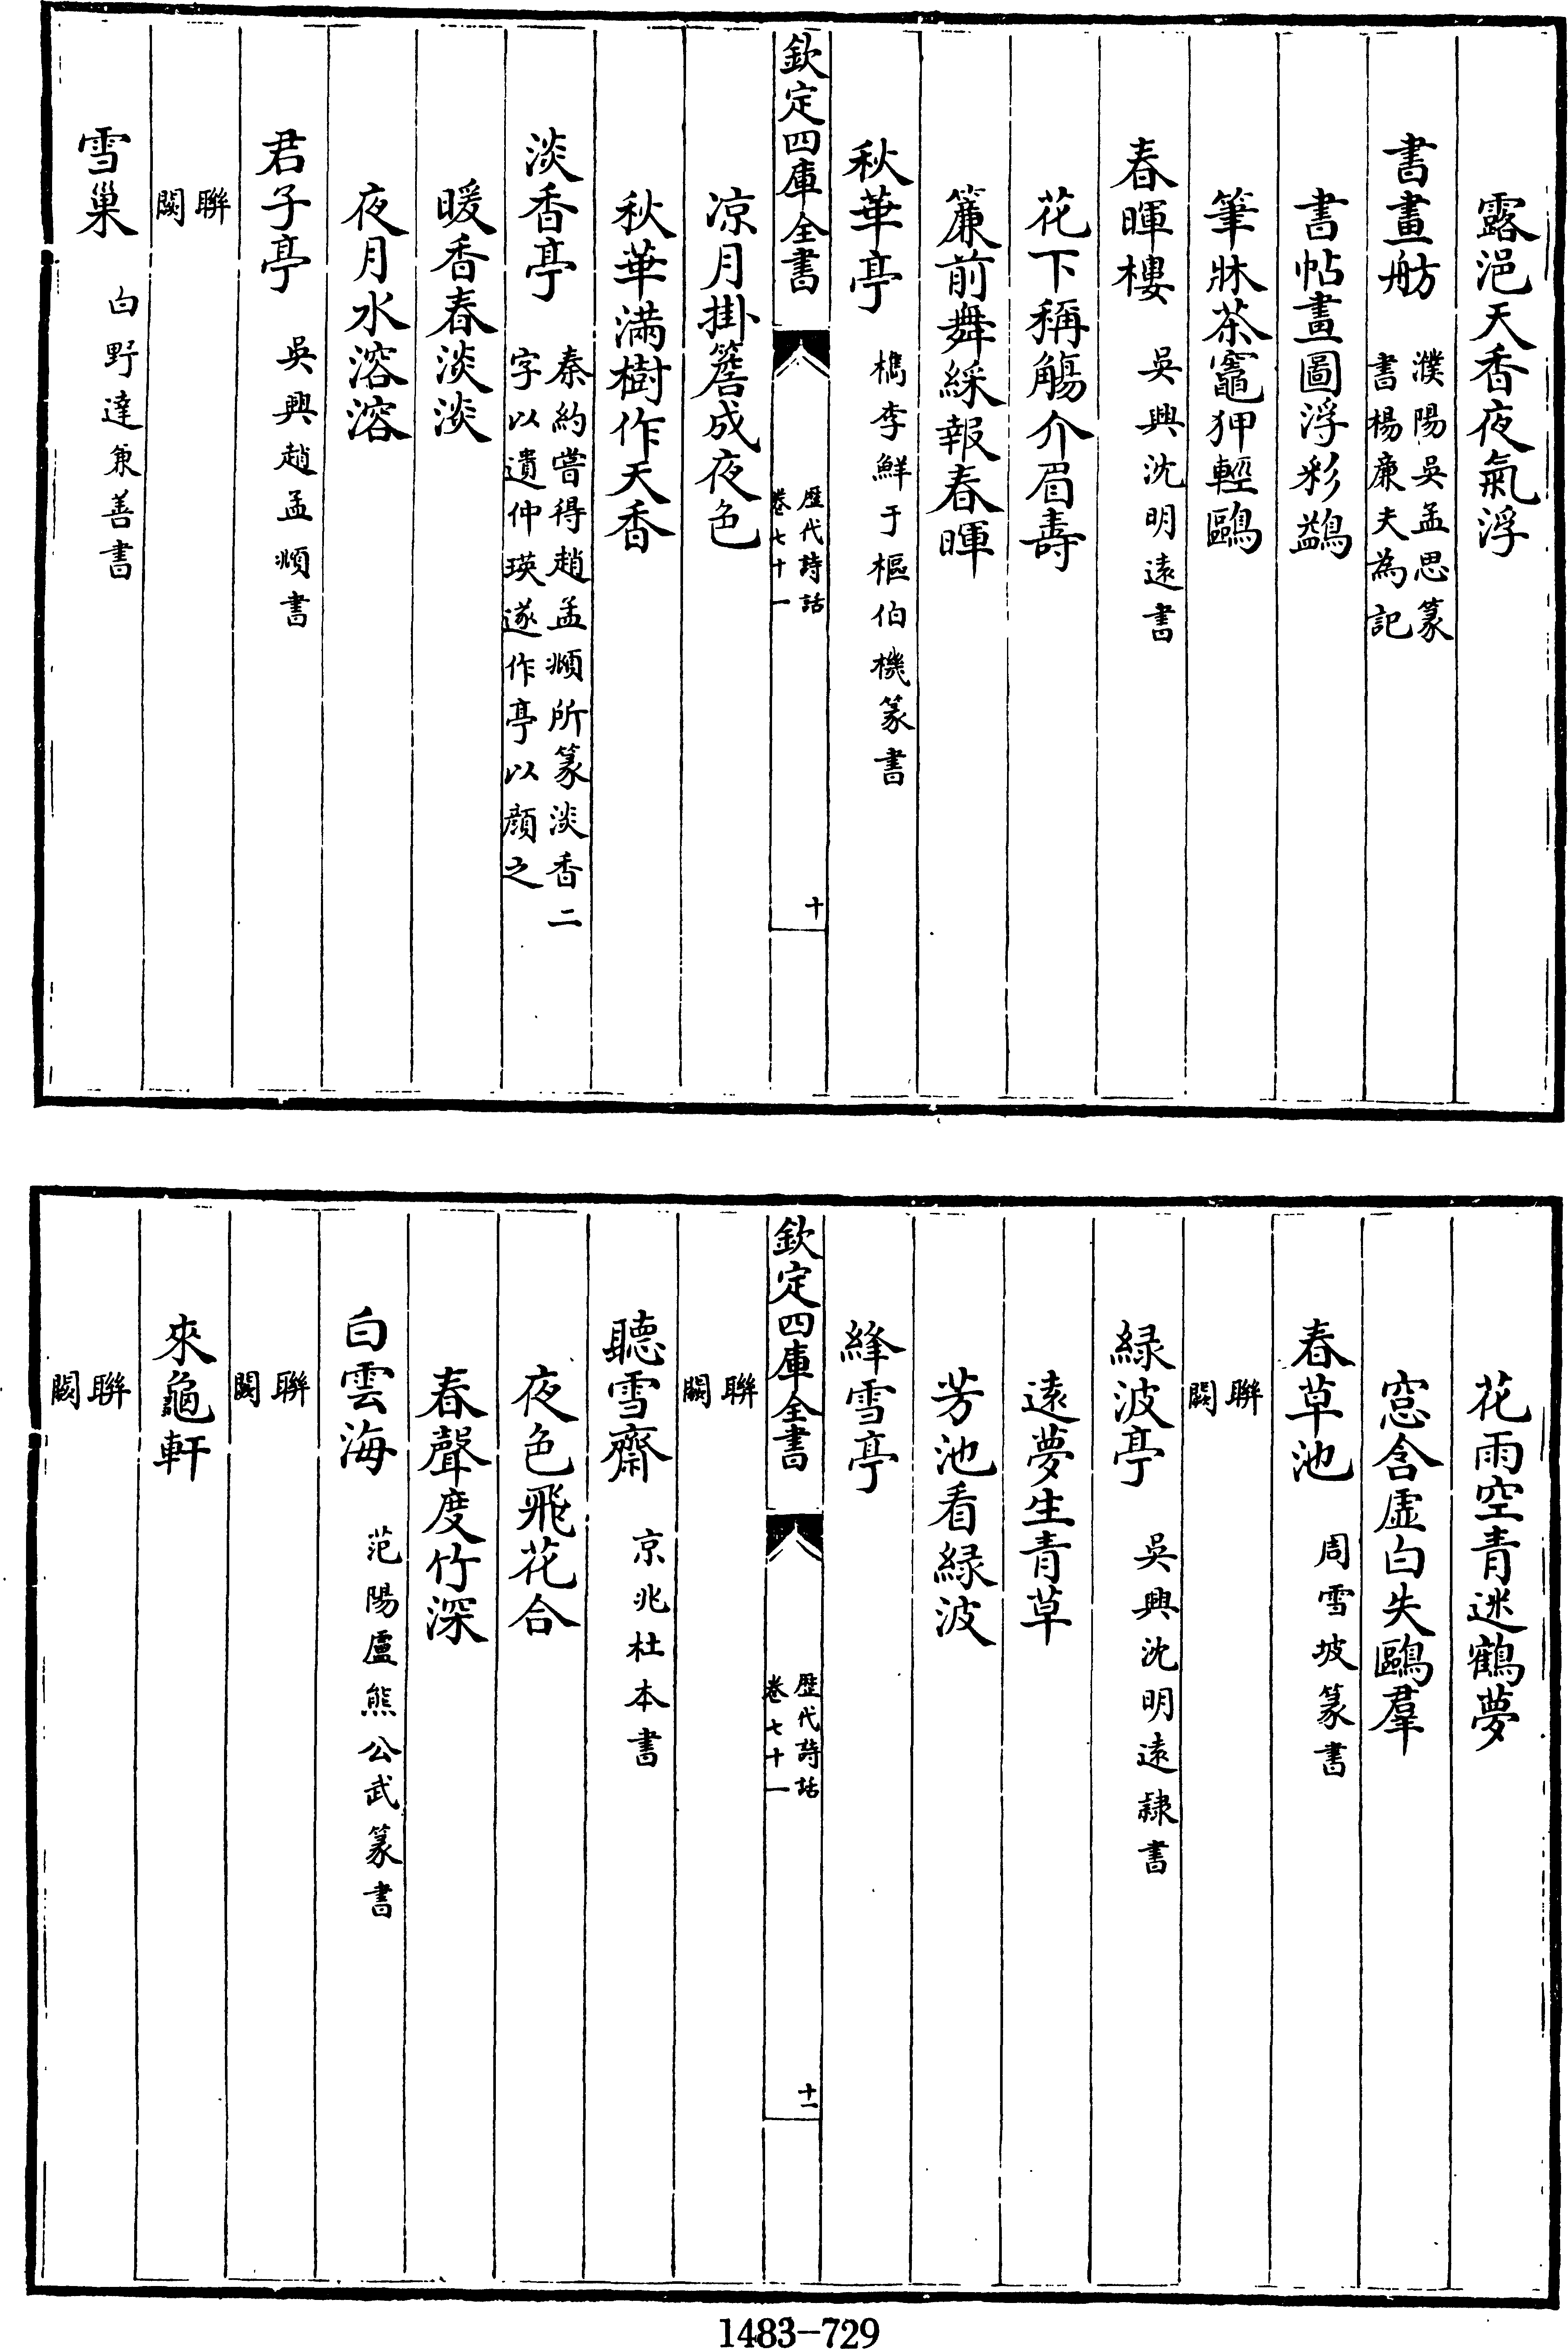 露浥天香夜氣浮
書畫舫 濮陽吳孟思篆
書楊廉夫為記
書帖畫圖浮彩鷁
筆牀茶竈狎輕鷗
春暉樓 吳興沈明遠書
花下稱觴介眉壽
簾前舞綵報春暉
秋華亭 檇李鮮于樞伯機篆書
欽定四庫全書 歷代詩話
卷七十一 十
凉月掛簷成夜色
秋華满樹作天香
淡香亭 秦約嘗得趙孟頫所篆淡香二
字以遺仲瑛遂作亭以顔之
暖香春淡淡
夜月水溶溶
君子亭 吳興趙孟頫書
聯
闕
雪巢 白野達兼善書
花雨空青迷鶴夢
窓含虛白失鷗羣
春草池 周雪坡篆書
聯
闕
緑波亭 吳興沈明遠隷書
遠夢生青草
芳池看緑波
絳雪亭
欽定四庫全書 歷代詩話
卷七十一 十一
聯
闕
聽雪齋 京兆杜本書
夜色飛花合
春聲度竹深
白雲海 范陽盧熊公武篆書
聯
闕
來龜軒
聯
闕
1483-729